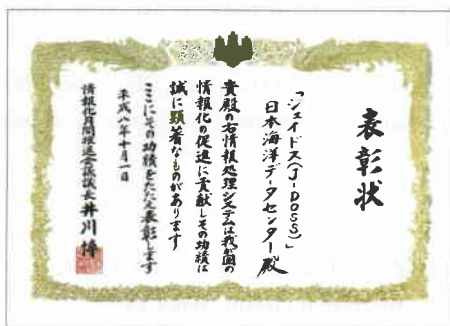 表彰状
「ジェイドス(J-DOSS)」
日本海洋データセンター殿
貴殿の右情報処理システムは我が国の
情報化の促進に貢献しその功績は
誠に顕著なものがあります
ここにその功績をたたえ表彰します
平成八年十月一日
情報化月間推進会議議長 井川博